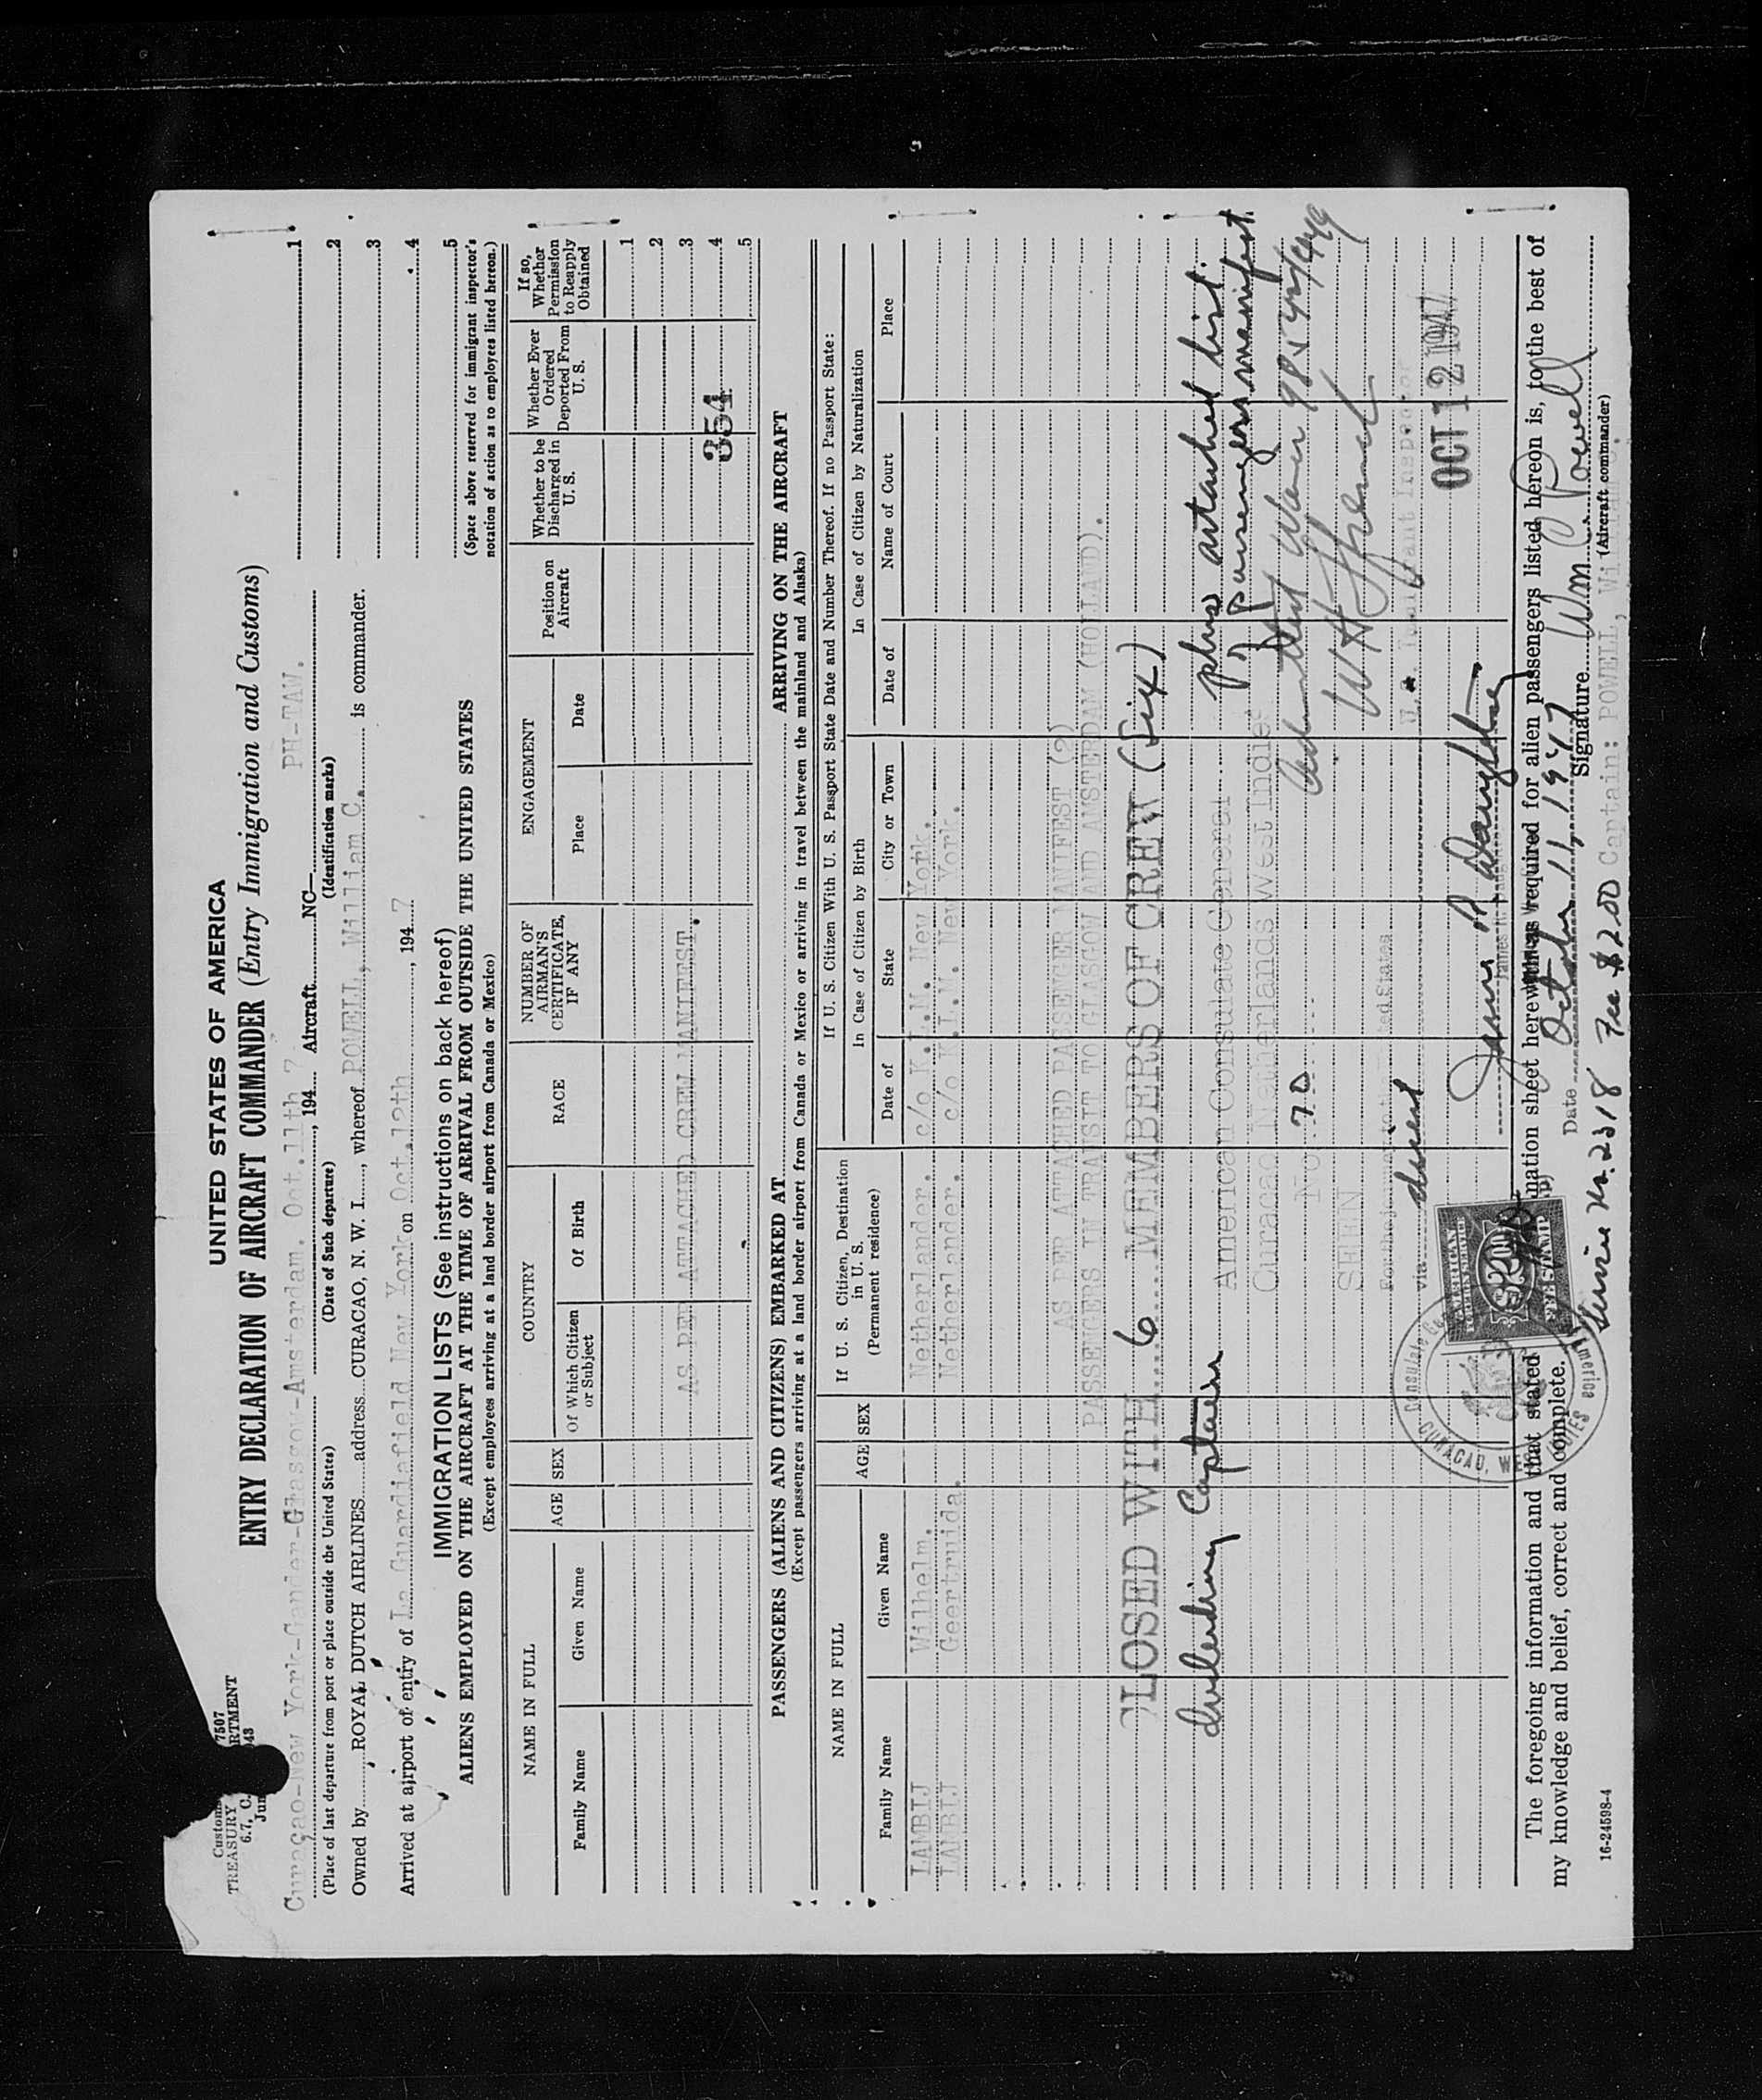 Customs 7507
TREASURY DEPARTMENT
6.7, C.
UNITED STATES OF AMERICA
ENTRY DECLARATION OF AIRCRAFT COMMANDER (Entry Immigration and Customs)
Curaçao-New York-Gander-Glasgow-Amsterdam. Oct.11th, 194 7 Aircraft NC— PH-TAW. 1
(Place of last departure from port or place outside the United States) (Date of Such departure) (Identification marks) 2
Owned by ROYAL DUTCH AIRLINES address CURACAO, N. W. I., whereof POWELL, William C. is commander. 3
Arrived at airport of entry of La Guardiafield New York on Oct.12th, 194 7 4
5
(Space above reserved for immigrant inspector's
notation of action as to employees listed hereon.)
IMMIGRATION LISTS (See instructions on back hereof)
ALIENS EMPLOYED ON THE AIRCRAFT AT THE TIME OF ARRIVAL FROM OUTSIDE THE UNITED STATES
(Except employees arriving at a land border airport from Canada or Mexico)
NAME IN FULL AGE SEX COUNTRY RACE NUMBER OF AIRMAN'S CERTIFICATE, IF ANY ENGAGEMENT Position on Aircraft Whether to be Discharged in U. S. Whether Ever Ordered Deported From U. S. If so, Whether Permission to Reapply Obtained
Family Name Given Name Of Which Citizen or Subject Of Birth Place Date
1
2
AS PER ATTACHED CREW MANIFEST. 3
354 4
5
PASSENGERS (ALIENS AND CITIZENS) EMBARKED AT ARRIVING ON THE AIRCRAFT
(Except passengers arriving at a land border airport from Canada or Mexico or arriving in travel between the mainland and Alaska)
NAME IN FULL AGE SEX If U. S. Citizen, Destination in U. S. (Permanent residence) If U. S. Citizen With U. S. Passport State Date and Number Thereof. If no Passport State:
In Case of Citizen by Birth In Case of Citizen by Naturalization
Family Name Given Name Date of State City or Town Date of Name of Court Place
LAMBIJ Wilhelm. Netherlander. c/o K.L.M. New York.
LAMBIJ Geertruida. Netherlander. c/o K.L.M. New York.
AS PER ATTACHED PASSENGER MANIFEST (2)
PASSENGERS IN TRANSIT TO GLASGOW AND AMSTERDAM (HOLLAND).
CLOSED WITH 6 MEMBERS OF CREW (Six)
including Captain plus attached list
American Consulate General
passengers manifest
Curaçao Netherlands West Indies
No. 70
SEEN
For the journey to the United States
via direct
U.S. Immigrant Inspector
OCT 12 1947
James R Daughtry
AMERICAN FOREIGN SERVICE
FEE STAMP
CURACAO, WEST INDIES
The foregoing information and that stated required for alien passengers listed hereon is, to the best of
my knowledge and belief, correct and complete.
Date October 11, 1947 Signature Wm. C Powell
(Aircraft commander)
Service No. 2318 Fee $2.00 Captain: POWELL, William C.
16-24598-4